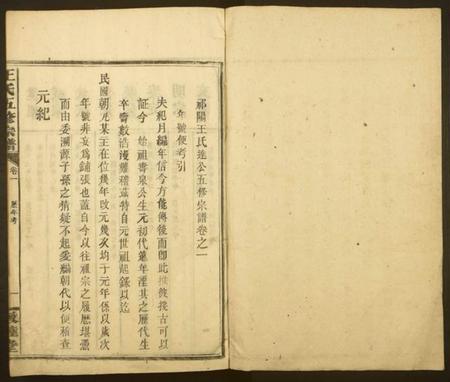 祁陽王氏達公五修宗譜卷之一
年號便考引
夫紀月編年信今方能傳後而卽此推彼援古可以
証今 始祖壽泉公生元初代遠年湮其之歷代生
卒齒數浩漫難稽茲特自元世祖起錄以迄
民國朝元某主在位幾年改元幾次均于元年係以歲次
年號非妄爲鋪張也蓋自今以往祖宗之履歷堪憑
而由委溯源子孫之猜疑不起爰編朝代以便稱查
元紀
王氏五修宗譜
卷一
歷年考
一